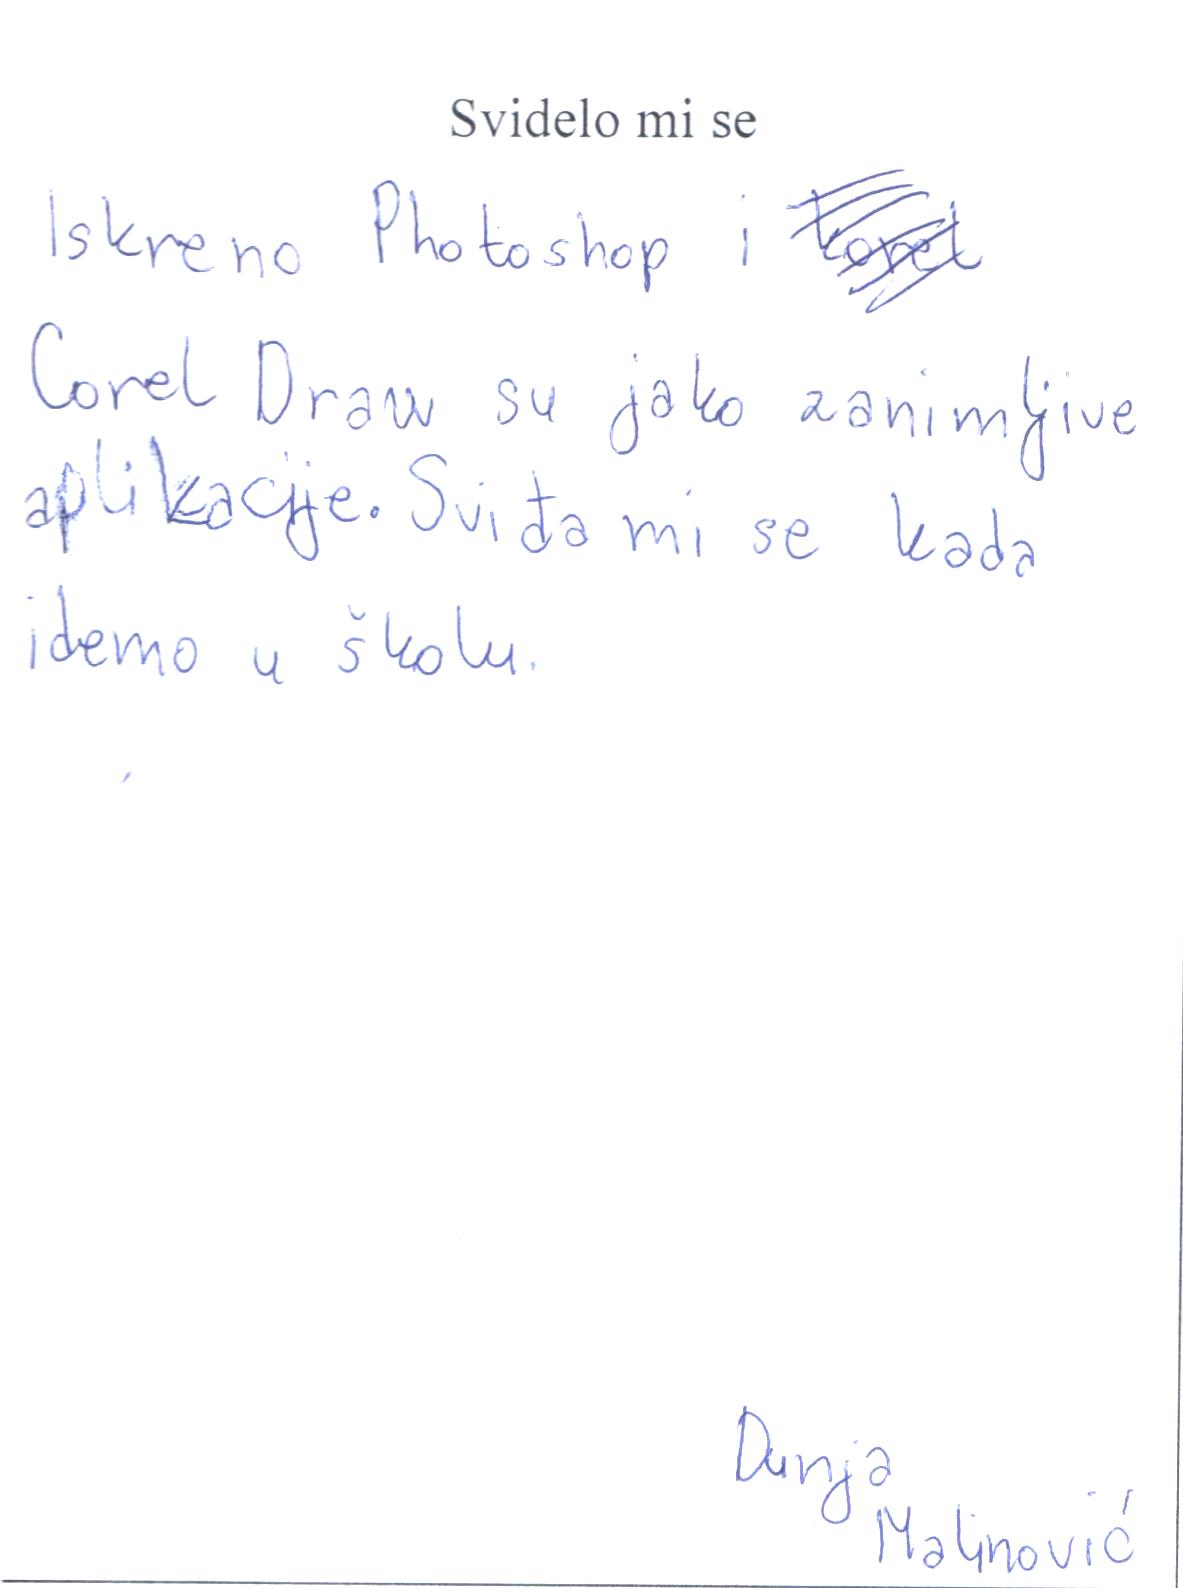 Svidelo mi se
Iskreno Photoshop i
Corel Draw su jako zanimljive
aplikacije. Sviđa mi se kada
idemo u školu.
Dunja
Malinović